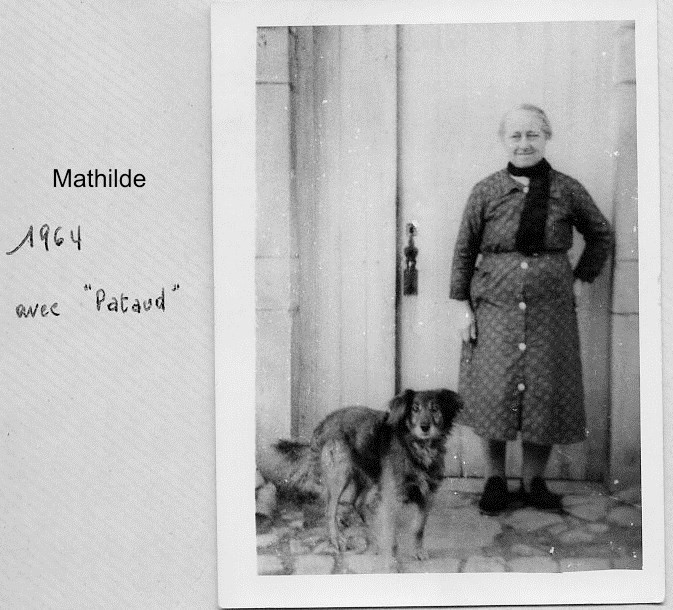 Mathilde
1964
avec "Pataud"